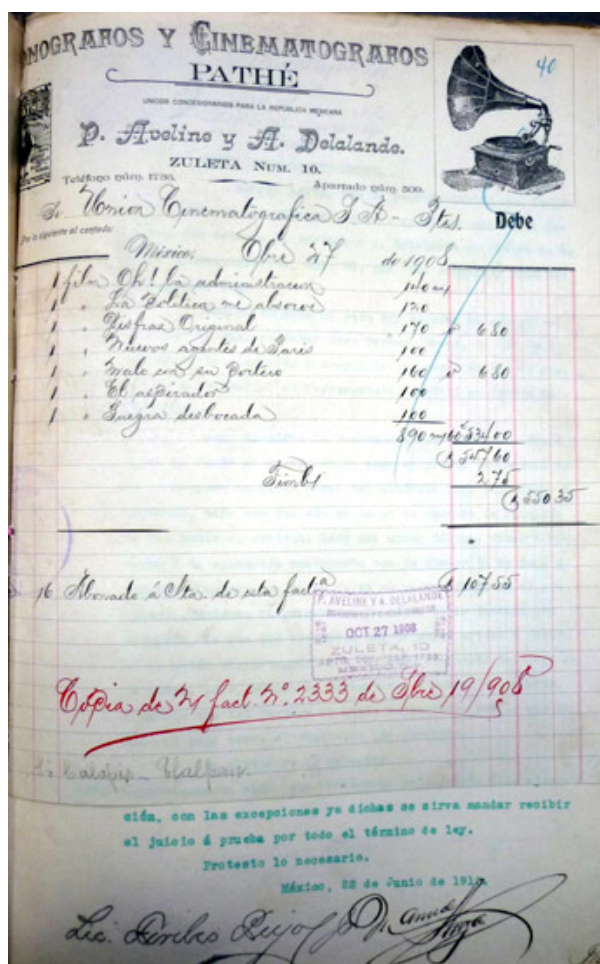 ONOGRAFOS Y CINEMATOGRAFOS
PATHÉ
40
UNICOS CONCESIONARIOS PARA LA REPUBLICA MEXICANA
P. Aveline y A. Delalande.
ZULETA NUM. 10.
Teléfono núm. 1736. Apartado núm. 500.
Sr Union Cinematografica S. A - Debe
Por lo siguiente al contado:
México, Obre 27 de 1908
1 film Oh! la administracion 140 m
1 " La politica me absorve 120
1 " Disfras Original 170 6 80
1 " Nuevos agentes de Paris 100
1 " Malo con su portero 160 6 80
1 " El aspirador 100
1 " Suegra desbocada 100
890 m 60 534 00
$ 547 60
Timbs 2 75
$ 550 35
16 Abonado á Cta. de esta facta $ 107 55
P. AVELINE Y A. DELALANDE
OCT 27 1908
ZULETA, 10
MEXICO
Copia de fact. No. 2333 de 19/908
ción, con las excepciones ya dichas se sirva mandar recibir
el juicio á prueba por todo el término de ley.
Protesto lo necesario.
México, 22 de Junio de 191
Lic.